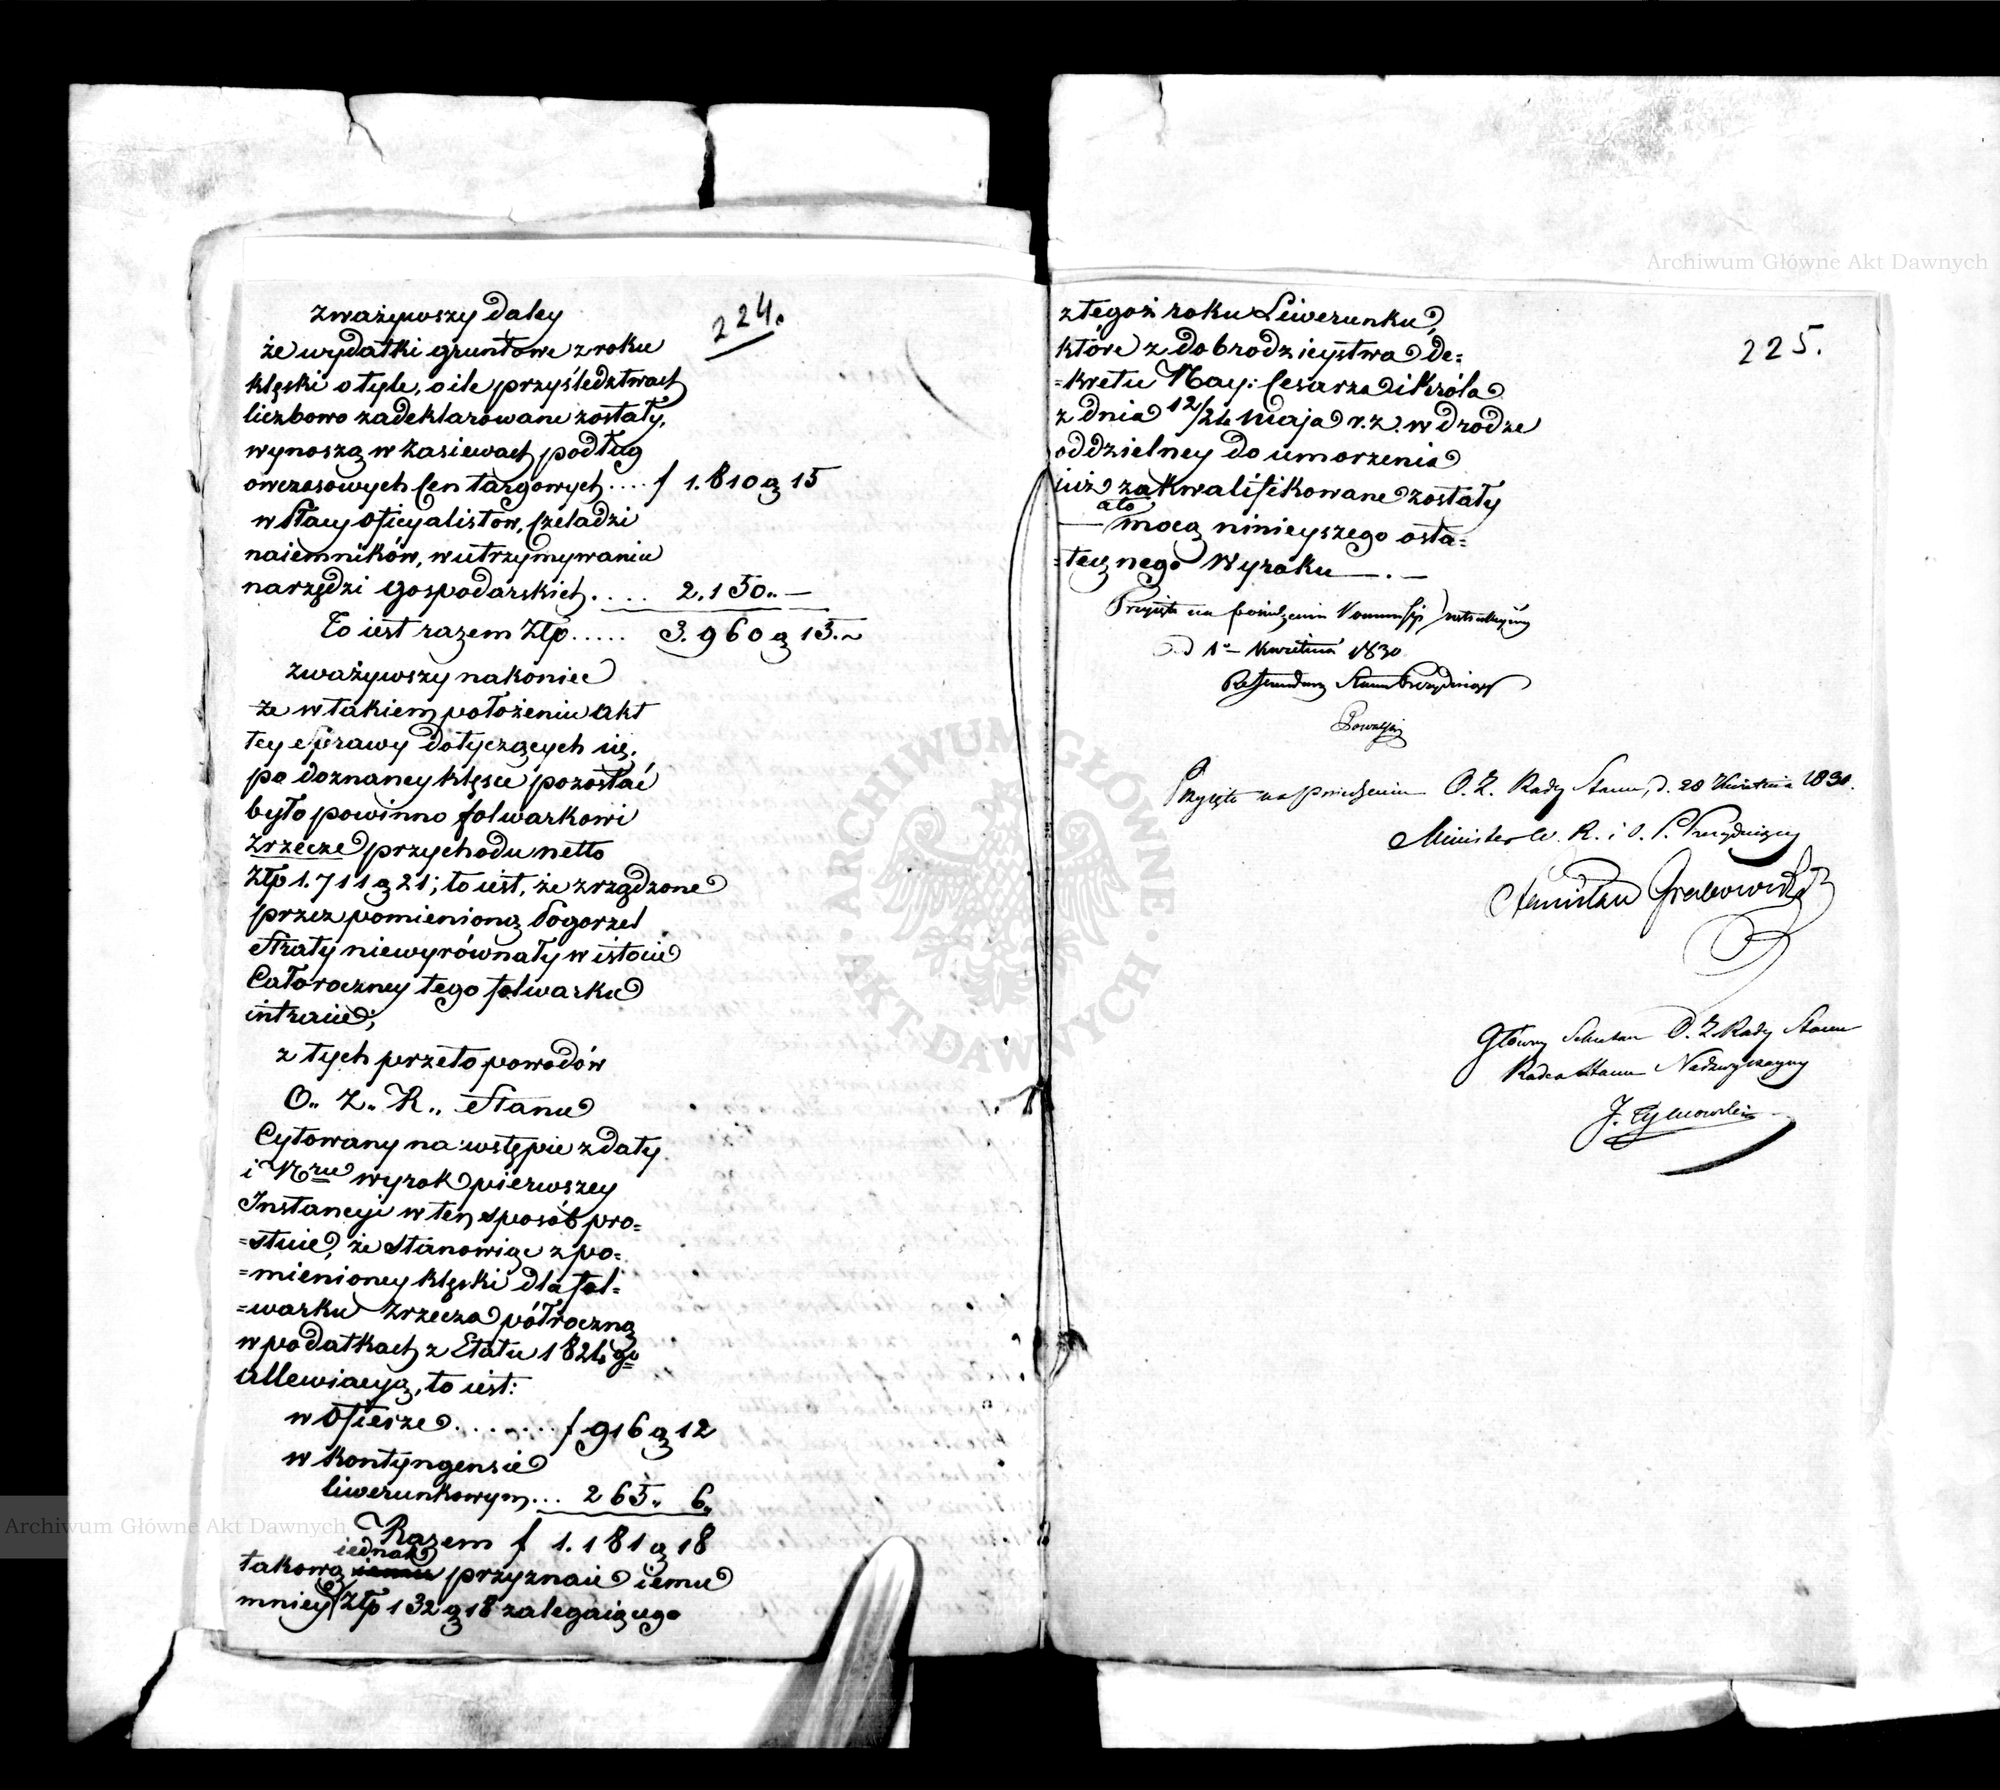 224.
zważywszy daley
że wydatki gruntowe z roku
klęski o tyle, o ile przy śledztwach
liczbowo zadeklarowane zostały,
wynoszą w zasiewach podług
owczasowych Cen targowych .... f 1.810 g 15
w Płacy oficyalistów, Czeladzi
naiemników, w utrzymywaniu
narzędzi gospodarskich .... 2.150 „ —
To iest razem Złp. .... 3.960 g 15. ~
zważywszy nakoniec
że w takiem położeniu akt
tey sprawy dotyczących się,
po doznaney klęsce pozostać
było powinno folwarkowi
Zrzecze przychodu netto
Złp 1.711 g 21; to iest, że zrządzone
przez pomienioną Pogorzel
straty niewyrównały w istocie
Całoroczney tego folwarku
intracie;
z tych przeto powodów
O. Z. R. Stanu
Cytowany na wstępie z daty
i Nru wyrok pierwszey
Instancyi w ten sposób pro=
=stuie, że stanowiąc z po=
=mienioney klęski dla fol=
=warku Zrzecza półroczną
w podatkach z Etatu 1824 go
allewiacyą, to iest:
w Ofierze ........ f 916 g 12
w kontyngensie
liwerunkowym ... 265 „ 6 „
Razem f 1.181 g 18
iednak
takową przyznaie iemu
mniey Złp 132 g 18 zalegaiącego
225.
z tegoż roku Liwerunku,
które z dobrodzieystwa de=
=kretu Nay: Cesarza i Króla
z dnia 12/24 Maja r. z. w drodze
oddzielney do umorzenia
iuż zakwalifikowane zostały
a to
— mocą ninieyszego osta=
=tecznego Wyroku —.—
Przyięto na posiedzeniu Kommissyi
d 1o Kwietnia 1830
Referendarz Stanu Prezyduiący
Przyięto na posiedzeniu O. Z. Rady Stanu, d. 20 Kwietnia 1830.
Minister W. R. i O. P. Prezyduiący
Stanisław Grabowski
Główny Sekretarz O. Z. Rady Stanu
Radca Stanu Nadzwyczayny
J. Tymowski
Archiwum Główne Akt Dawnych
ARCHIWUM GŁÓWNE · AKT DAWNYCH ·
Archiwum Główne Akt Dawnych